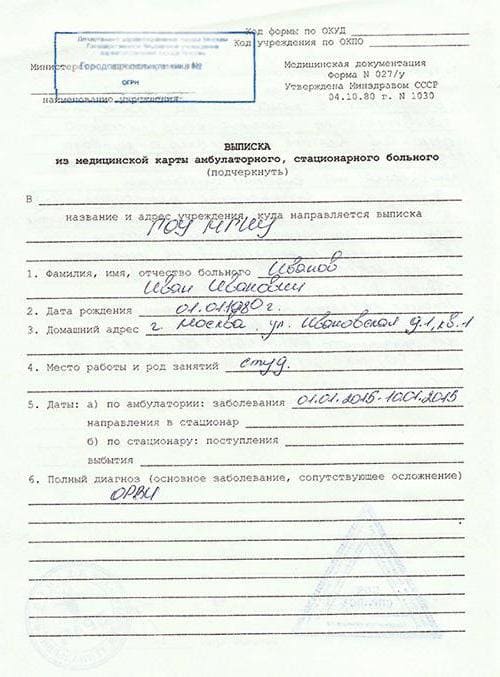 Код формы по ОКУД
Код учреждения по ОКПО
Департамент здравоохранения города Москвы
Государственное бюджетное учреждение
здравоохранения города Москвы
Министерс
Городская поликлиника №
ОГРН
наименование учреждения
Медицинская документация
Форма N 027/у
Утверждена Минздравом СССР
04.10.80 г. N 1030
ВЫПИСКА
из медицинской карты амбулаторного, стационарного больного
(подчеркнуть)
В
название и адрес учреждения, куда направляется выписка
1. Фамилия, имя, отчество больного Иванов
Иван Иванович
2. Дата рождения 01.011980г.
3. Домашний адрес г. Москва. ул. Ивановская д.1, кв.1
4. Место работы и род занятий студ.
5. Даты: а) по амбулатории: заболевания 01.01.2015-10.01.2015
направления в стационар
б) по стационару: поступления
выбытия
6. Полный диагноз (основное заболевание, сопутствующее осложнение)
ОРВИ